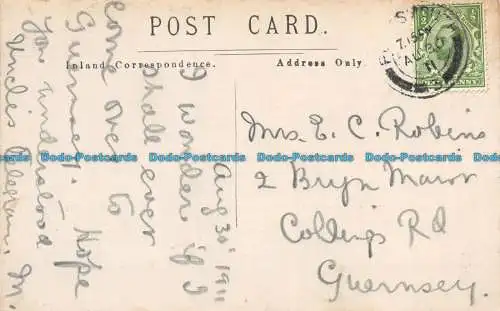 POST CARD.
Inland Correspondence.
Address Only.
Aug 30' 1911
I wonder if I
shall ever
come over to
Guernsey. Hope
you understood
Uncles telegram. M.
Mrs. E. C. Robins
2 Bryn Mawr
Collings Rd
Guernsey.
7.15 PM
AU 30
11
Dodo-Postcards Dodo-Postcards Dodo-Postcards Dodo-Postcards Dodo-Postcards